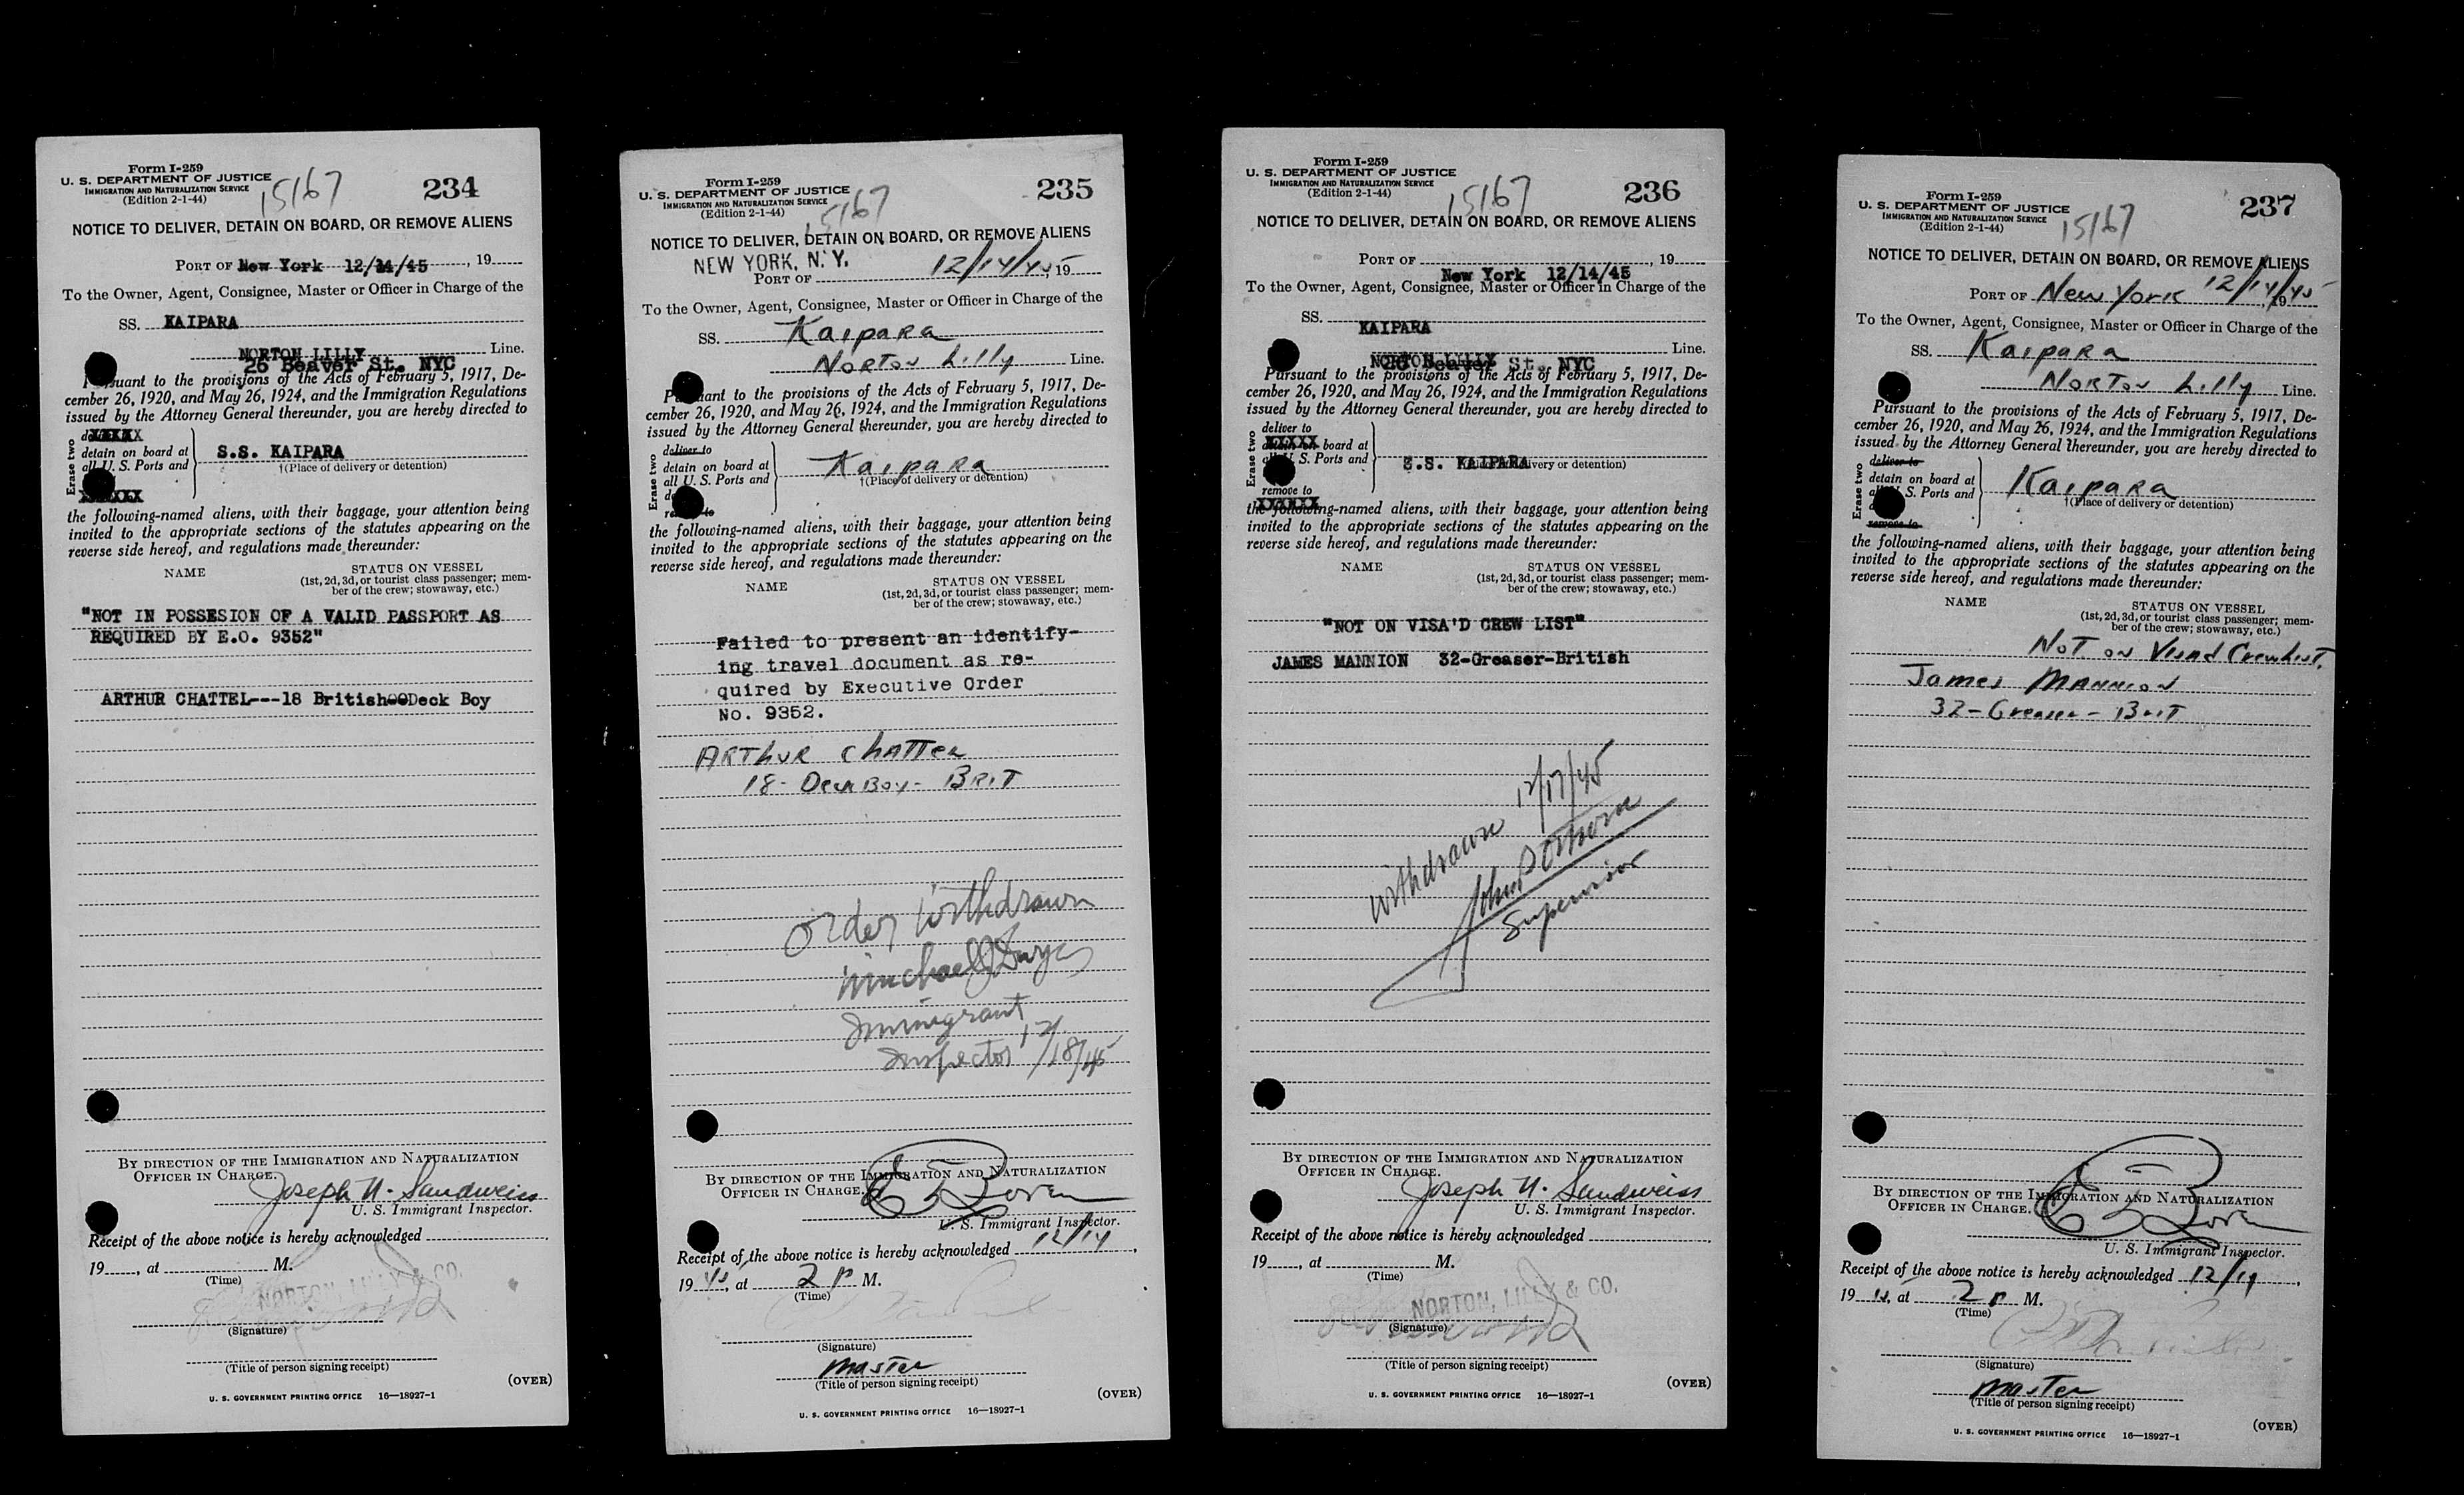 Form I-259
U. S. DEPARTMENT OF JUSTICE
IMMIGRATION AND NATURALIZATION SERVICE
(Edition 2-1-44)
15167
234
NOTICE TO DELIVER, DETAIN ON BOARD, OR REMOVE ALIENS
PORT OF New York 12/14/45, 19
To the Owner, Agent, Consignee, Master or Officer in Charge of the
SS. KAIPARA
NORTON LILLY Line.
26 Beaver St. NYC
Pursuant to the provisions of the Acts of February 5, 1917, De-
cember 26, 1920, and May 26, 1924, and the Immigration Regulations
issued by the Attorney General thereunder, you are hereby directed to
Erase two
detain on board at
all U. S. Ports and
S.S. KAIPARA
†(Place of delivery or detention)
the following-named aliens, with their baggage, your attention being
invited to the appropriate sections of the statutes appearing on the
reverse side hereof, and regulations made thereunder:
NAME
STATUS ON VESSEL
(1st, 2d, 3d, or tourist class passenger; mem-
ber of the crew; stowaway, etc.)
"NOT IN POSSESION OF A VALID PASSPORT AS
REQUIRED BY E.O. 9352"
ARTHUR CHATTEL---18 British Deck Boy
BY DIRECTION OF THE IMMIGRATION AND NATURALIZATION
OFFICER IN CHARGE.
Joseph N. Sandweiss
U. S. Immigrant Inspector.
Receipt of the above notice is hereby acknowledged
19, at M.
(Time)
NORTON, LILLY & CO.
(Signature)
(Title of person signing receipt)
(OVER)
U. S. GOVERNMENT PRINTING OFFICE 16—18927-1
Form I-259
U. S. DEPARTMENT OF JUSTICE
IMMIGRATION AND NATURALIZATION SERVICE
(Edition 2-1-44)
15167
235
NOTICE TO DELIVER, DETAIN ON BOARD, OR REMOVE ALIENS
NEW YORK, N. Y.
PORT OF 12/14/45, 19
To the Owner, Agent, Consignee, Master or Officer in Charge of the
SS. Kaipara
Norton Lilly Line.
Pursuant to the provisions of the Acts of February 5, 1917, De-
cember 26, 1920, and May 26, 1924, and the Immigration Regulations
issued by the Attorney General thereunder, you are hereby directed to
Erase two
deliver to
detain on board at
all U. S. Ports and
Kaipara
†(Place of delivery or detention)
the following-named aliens, with their baggage, your attention being
invited to the appropriate sections of the statutes appearing on the
reverse side hereof, and regulations made thereunder:
NAME
STATUS ON VESSEL
(1st, 2d, 3d, or tourist class passenger; mem-
ber of the crew; stowaway, etc.)
Failed to present an identify-
ing travel document as re-
quired by Executive Order
No. 9352.
Arthur Chattel
18- Deck Boy- Brit
Order Withdrawn
Immigrant
Inspector 12/18/45
BY DIRECTION OF THE IMMIGRATION AND NATURALIZATION
OFFICER IN CHARGE.
U. S. Immigrant Inspector.
Receipt of the above notice is hereby acknowledged 12/14,
1945, at 2 P M.
(Time)
(Signature)
Master
(Title of person signing receipt)
(OVER)
U. S. GOVERNMENT PRINTING OFFICE 16—18927-1
Form I-259
U. S. DEPARTMENT OF JUSTICE
IMMIGRATION AND NATURALIZATION SERVICE
(Edition 2-1-44)
15167
236
NOTICE TO DELIVER, DETAIN ON BOARD, OR REMOVE ALIENS
PORT OF , 19
New York 12/14/45
To the Owner, Agent, Consignee, Master or Officer in Charge of the
SS.
KAIPARA
NORTON LILLY Line.
26 Beaver St. NYC
Pursuant to the provisions of the Acts of February 5, 1917, De-
cember 26, 1920, and May 26, 1924, and the Immigration Regulations
issued by the Attorney General thereunder, you are hereby directed to
Erase two
deliver to
detain on board at
all U. S. Ports and
S.S. KAIPARA
†(Place of delivery or detention)
remove to
the following-named aliens, with their baggage, your attention being
invited to the appropriate sections of the statutes appearing on the
reverse side hereof, and regulations made thereunder:
NAME
STATUS ON VESSEL
(1st, 2d, 3d, or tourist class passenger; mem-
ber of the crew; stowaway, etc.)
"NOT ON VISA'D CREW LIST"
JAMES MANNION 32-Greaser-British
Withdrawn 12/17/45
Supervisor
BY DIRECTION OF THE IMMIGRATION AND NATURALIZATION
OFFICER IN CHARGE.
Joseph N. Sandweiss
U. S. Immigrant Inspector.
Receipt of the above notice is hereby acknowledged
19, at M.
(Time)
NORTON, LILLY & CO.
(Signature)
(Title of person signing receipt)
(OVER)
U. S. GOVERNMENT PRINTING OFFICE 16—18927-1
Form I-259
U. S. DEPARTMENT OF JUSTICE
IMMIGRATION AND NATURALIZATION SERVICE
(Edition 2-1-44)
15167
237
NOTICE TO DELIVER, DETAIN ON BOARD, OR REMOVE ALIENS
PORT OF New York 12/14/45, 19
To the Owner, Agent, Consignee, Master or Officer in Charge of the
SS. Kaipara
Norton Lilly Line.
Pursuant to the provisions of the Acts of February 5, 1917, De-
cember 26, 1920, and May 26, 1924, and the Immigration Regulations
issued by the Attorney General thereunder, you are hereby directed to
Erase two
deliver to
detain on board at
all U. S. Ports and
Kaipara
†(Place of delivery or detention)
remove to
the following-named aliens, with their baggage, your attention being
invited to the appropriate sections of the statutes appearing on the
reverse side hereof, and regulations made thereunder:
NAME
STATUS ON VESSEL
(1st, 2d, 3d, or tourist class passenger; mem-
ber of the crew; stowaway, etc.)
Not on Visad Crew List.
James Mannion
32- Greaser- Brit
BY DIRECTION OF THE IMMIGRATION AND NATURALIZATION
OFFICER IN CHARGE.
U. S. Immigrant Inspector.
Receipt of the above notice is hereby acknowledged 12/14,
1945, at 2 P M.
(Time)
(Signature)
Master
(Title of person signing receipt)
(OVER)
U. S. GOVERNMENT PRINTING OFFICE 16—18927-1